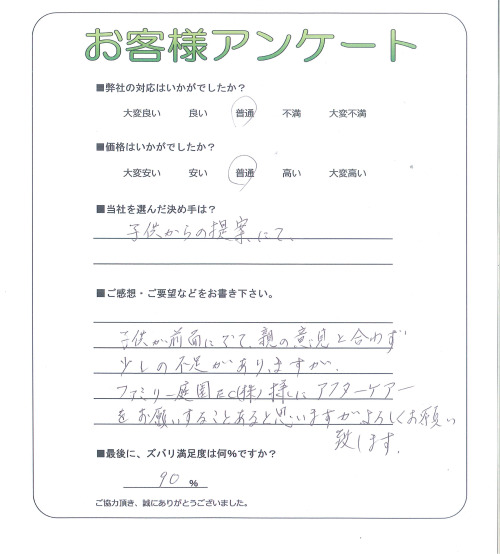 お客様アンケート
■弊社の対応はいかがでしたか？
大変良い 良い 普通 不満 大変不満
■価格はいかがでしたか？
大変安い 安い 普通 高い 大変高い
■当社を選んだ決め手は？
子供からの提案にて、
■ご感想・ご要望などをお書き下さい。
子供が前面にでて、親の意見と合わず
少しの不足がありますが、
ファミリー庭園 (株)様にアフターケアー
をお願いすることあると思いますがよろしくお願い
致します。
■最後に、ズバリ満足度は何%ですか？
90 %
ご協力頂き、誠にありがとうございました。